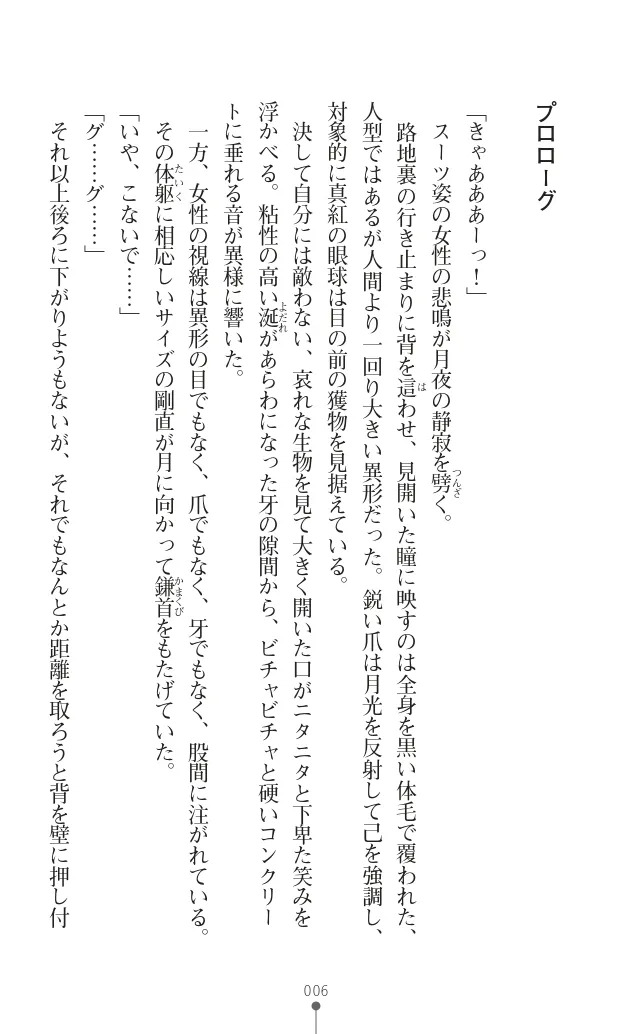 プロローグ
「きゃあああーっ！」
スーツ姿の女性の悲鳴が月夜の静寂を劈く。
路地裏の行き止まりに背を這わせ、見開いた瞳に映すのは全身を黒い体毛で覆われた、
人型ではあるが人間より一回り大きい異形だった。鋭い爪は月光を反射して己を強調し、
対象的に真紅の眼球は目の前の獲物を見据えている。
決して自分には敵わない、哀れな生物を見て大きく開いた口がニタニタと下卑た笑みを
浮かべる。粘性の高い涎があらわになった牙の隙間から、ビチャビチャと硬いコンクリー
トに垂れる音が異様に響いた。
一方、女性の視線は異形の目でもなく、爪でもなく、牙でもなく、股間に注がれている。
その体躯に相応しいサイズの剛直が月に向かって鎌首をもたげていた。
「いや、こないで……」
「グ……グ……」
それ以上後ろに下がりようもないが、それでもなんとか距離を取ろうと背を壁に押し付
つんざ
は
よだれ
たいく
かまくび
006